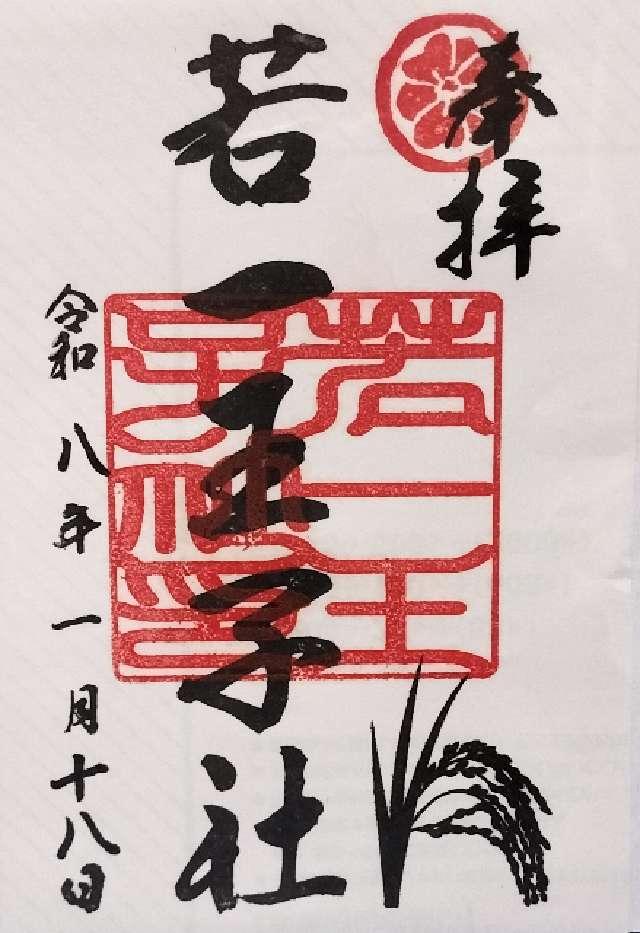 奉拝
若一王子社
若一王子社印
令和八年一月十八日